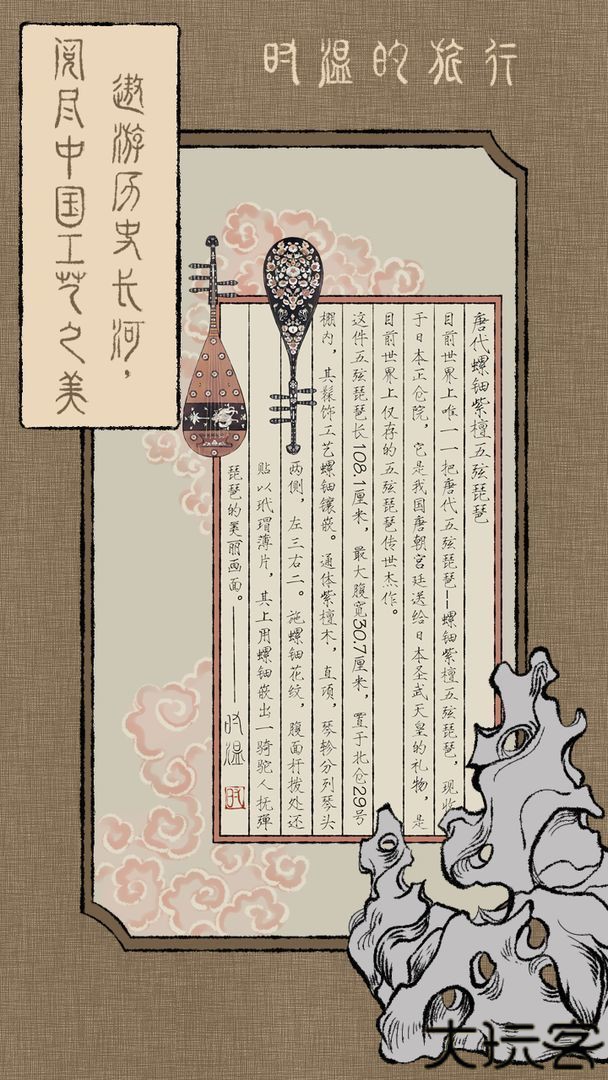 时温的旅行
遨游历史长河，
阅尽中国工艺之美
唐代螺钿紫檀五弦琵琶
目前世界上唯一一把唐代五弦琵琶—螺钿紫檀五弦琵琶，现收
于日本正仓院，它是我国唐朝宫廷送给日本圣武天皇的礼物，是
目前世界上仅存的五弦琵琶传世杰作。
这件五弦琵琶长108.1厘米，最大腹宽30.7厘米，置于北仓29号
棚内，其髹饰工艺螺钿镶嵌。通体紫檀木，直项，琴轸分列琴头
两侧，左三右二。施螺钿花纹，腹面杆拨处还
贴以玳瑁薄片，其上用螺钿嵌出一骑驼人抚弹
琵琶的美丽画面。——时温
时
大玩客